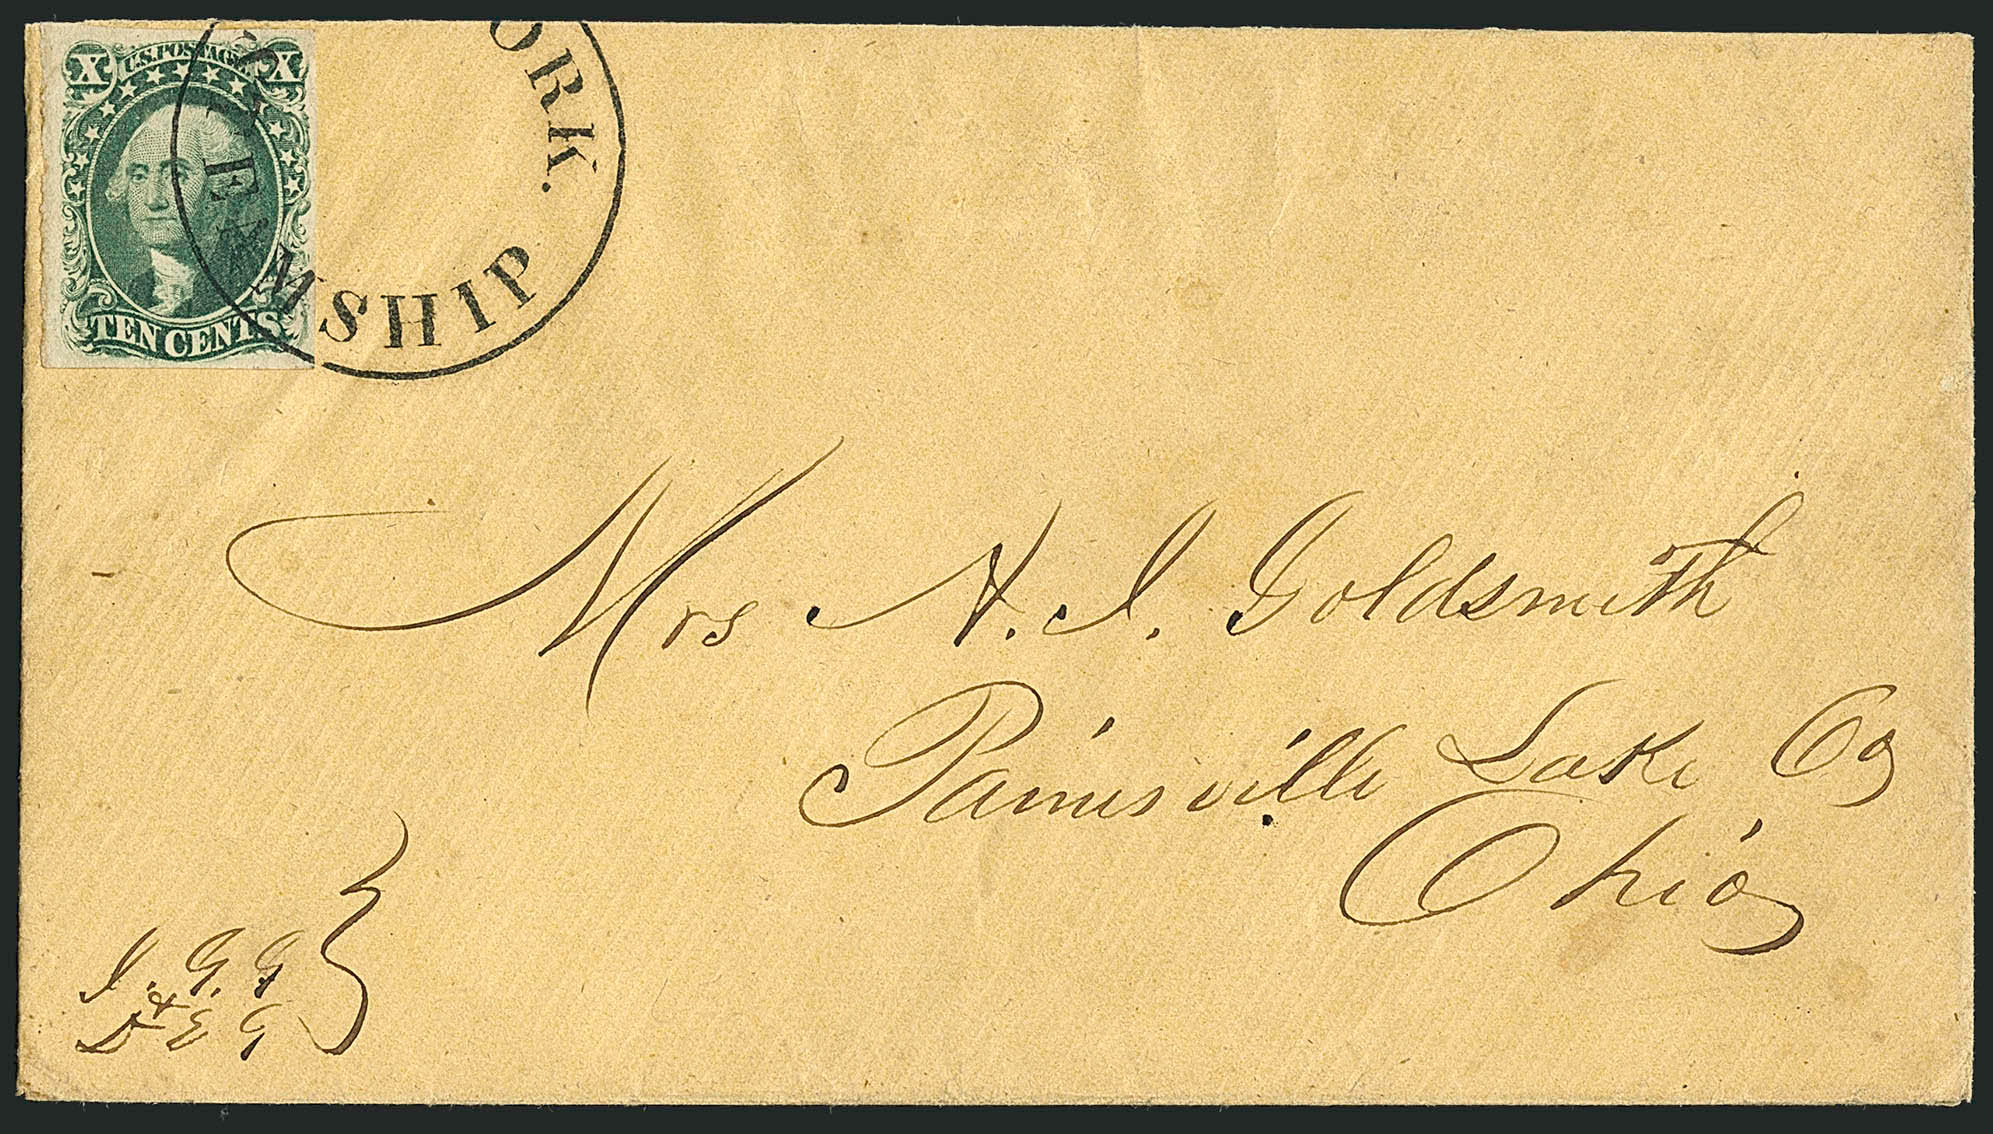 X U.S. POSTAGE X
TEN CENTS
ORK.
STEAMSHIP
Mrs A. I. Goldsmith
Painesville Lake Co
Ohio
I. G. G
& 
D E G